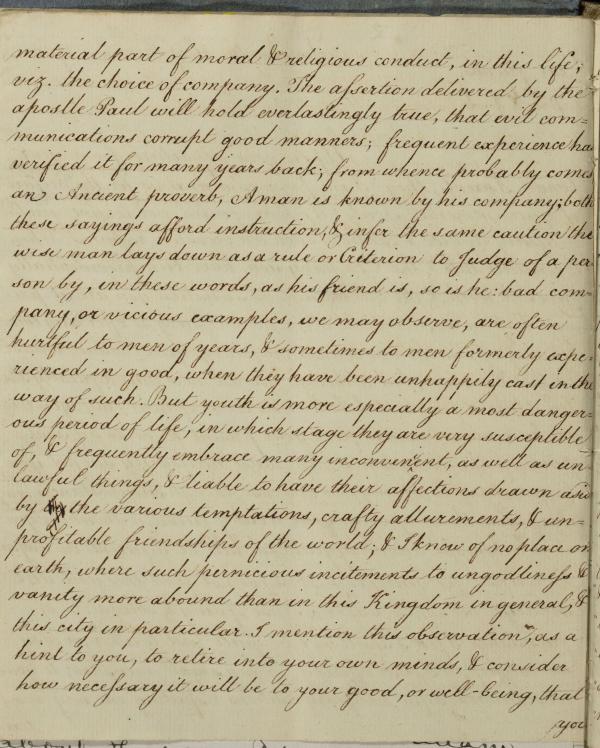 material part of moral & religious conduct, in this life;
viz. the choice of company. The assertion delivered by the
apostle Paul will hold everlastingly true, that evil com=
munications corrupt good manners; frequent experience has
verified it for many years back; from whence probably comes
an Ancient proverb, A man is known by his company; both
these sayings afford instruction, & infer the same caution the
wise man lays down as a rule or Criterion to Judge of a per=
son by, in these words, as his friend is, so is he: bad com=
pany, or vicious examples, we may observe, are often
hurtful to men of years, & sometimes to men formerly expe=
rienced in good, when they have been unhappily cast in the
way of such. But youth is more especially a most danger=
ous period of life, in which stage they are very susceptible
of, & frequently embrace many inconvenient, as well as un=
lawful things, & liable to have their affections drawn aside
by the various temptations, crafty allurements, & un=
profitable friendships of the world; & I know of no place on
earth, where such pernicious incitements to ungodliness &
vanity more abound than in this Kingdom in general, &
this city in particular. I mention this observation, as a
hint to you, to retire into your own minds, & consider
how necessary it will be to your good, or well-being, that
you